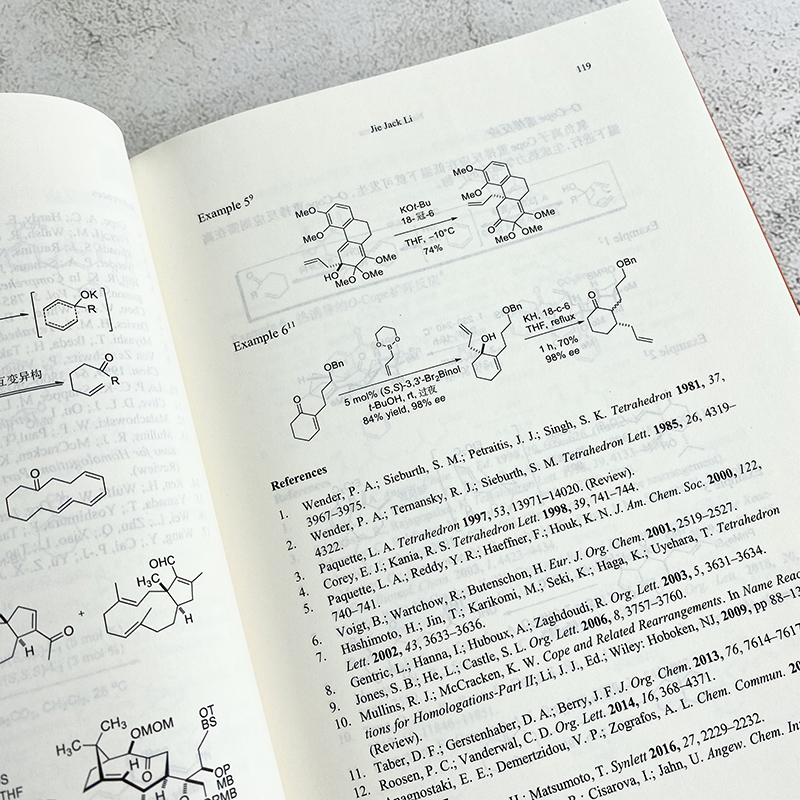 119
Jie Jack Li
Example 5⁹
MeO
MeO
HO
OMe
MeO OMe
KOt-Bu
18-冠-6
THF, −10°C
74%
MeO
MeO
O
OMe
MeO OMe
Example 6¹¹
O
OBn
O O
B
5 mol% (S,S)-3,3'-Br₂Binol
t-BuOH, rt, 过夜
84% yield, 98% ee
OBn
OH
KH, 18-c-6
THF, reflux
1 h, 70%
98% ee
OBn
O
References
1. Wender, P. A.; Sieburth, S. M.; Petraitis, J. J.; Singh, S. K. Tetrahedron 1981, 37,
3967–3975.
2. Wender, P. A.; Ternansky, R. J.; Sieburth, S. M. Tetrahedron Lett. 1985, 26, 4319–
4322.
3. Paquette, L. A. Tetrahedron 1997, 53, 13971–14020. (Review).
4. Corey, E. J.; Kania, R. S. Tetrahedron Lett. 1998, 39, 741–744.
5. Paquette, L. A.; Reddy, Y. R.; Haeffner, F.; Houk, K. N. J. Am. Chem. Soc. 2000, 122,
740–741.
6. Voigt, B.; Wartchow, R.; Butenschon, H. Eur. J. Org. Chem. 2001, 2519–2527.
7. Hashimoto, H.; Jin, T.; Karikomi, M.; Seki, K.; Haga, K.; Uyehara, T. Tetrahedron
Lett. 2002, 43, 3633–3636.
8. Gentric, L.; Hanna, I.; Huboux, A.; Zaghdoudi, R. Org. Lett. 2003, 5, 3631–3634.
9. Jones, S. B.; He, L.; Castle, S. L. Org. Lett. 2006, 8, 3757–3760.
10. Mullins, R. J.; McCracken, K. W. Cope and Related Rearrangements. In Name Reac
tions for Homologations-Part II; Li, J. J., Ed.; Wiley: Hoboken, NJ, 2009, pp 88–13
(Review).
11. Taber, D. F.; Gerstenhaber, D. A.; Berry, J. F. J. Org. Chem. 2013, 76, 7614–7617
12. Roosen, P. C.; Vanderwal, C. D. Org. Lett. 2014, 16, 368–4371.
Anagnostaki, E. E.; Demertzidou, V. P.; Zografos, A. L. Chem. Commun. 20
H.; Matsumoto, T. Synlett 2016, 27, 2229–2232.
P.; Cisarova, I.; Jahn, U. Angew. Chem. Int
OK
R
互变异构
O
R
O
OHC
H₃C
H
+
O
H
CH₃
H₃C
OMOM
OT
BS
H
O
H
OP
MB
S
THF